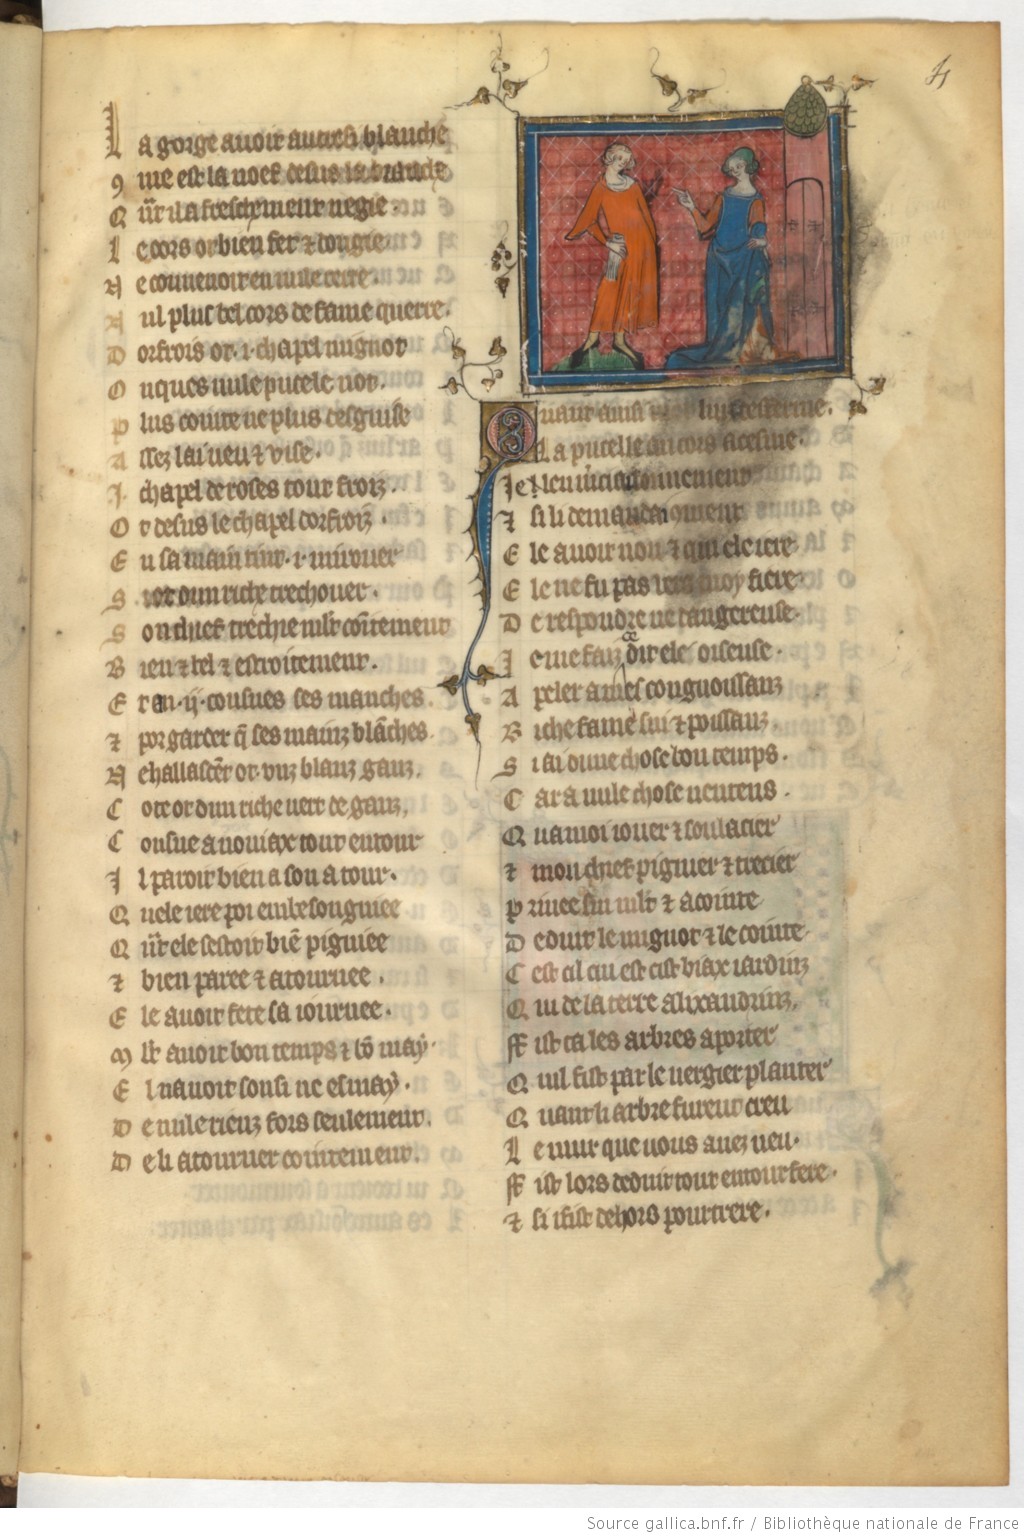 4
La gorge avoit autresi blanche
9me est la noef desus la branche
Qūt il a freschement negie
Le cors ot bien fet & dougie
Ne couvenoit en nule terre.
Nul plus bel cors de fame querre.
Dorfrois ot .i. chapel mignot
Onques nule pucele not.
Plus cointe ne plus desguise
Assez lai veu & vise.
I chapel de roses tout froiz.
Or desus le chapel dorfroiz.
En sa main tint .i. mirouer
Si ot dun riche trechouer.
Son chief trechie mlt cointement
Bien & bel & estroitement.
Et an .ij. cousues ses manches
& por garder q̄ ses mainz blāches.
Nehallascēt ot unz blanz ganz.
Cote ot dun riche vert de ganz.
Cousue a noviax tout entour
Il paroit bien a son atour.
Quele iere poi embesougniee
Qūt ele sestoit biē pigniee
& bien paree & atournee.
Ele avoit fete sa journee.
Mlt avoit bon temps & bō may.
El navoit sousi ne esmay.
De nule rienz fors seulement.
De li atourner cointement.
Quant ainsi lui desferme.
La pucelle au cors acesme.
Je len merciai bonnement
& si li demandai coment
Ele avoit non & qui ele iere
Ele ne fu pas vers moy fiere
De respondre ne dangereuse.
Je me faiz ce dit ele oiseuse.
Apeler a mes congnoissanz
Riche fame sui & poissanz.
Si ai dune chose bon temps.
Car a nule chose ne tens.
Qua moi jouer & soulacier
& mon chief pignier & trecier
Privee sui mlt & acointe
Deduit le mignot & le cointe
Cest cil cui est cist biax jardinz
Qui de la terre alixandrinz.
Fist ca les arbres aporter
Quil fist par le vergier planter
Quant li arbre furent creu
Le mur que vous avez veu.
Fist lors deduit tout entour fere.
& si i fist dehors pourtrere.
Source gallica.bnf.fr / Bibliothèque nationale de France